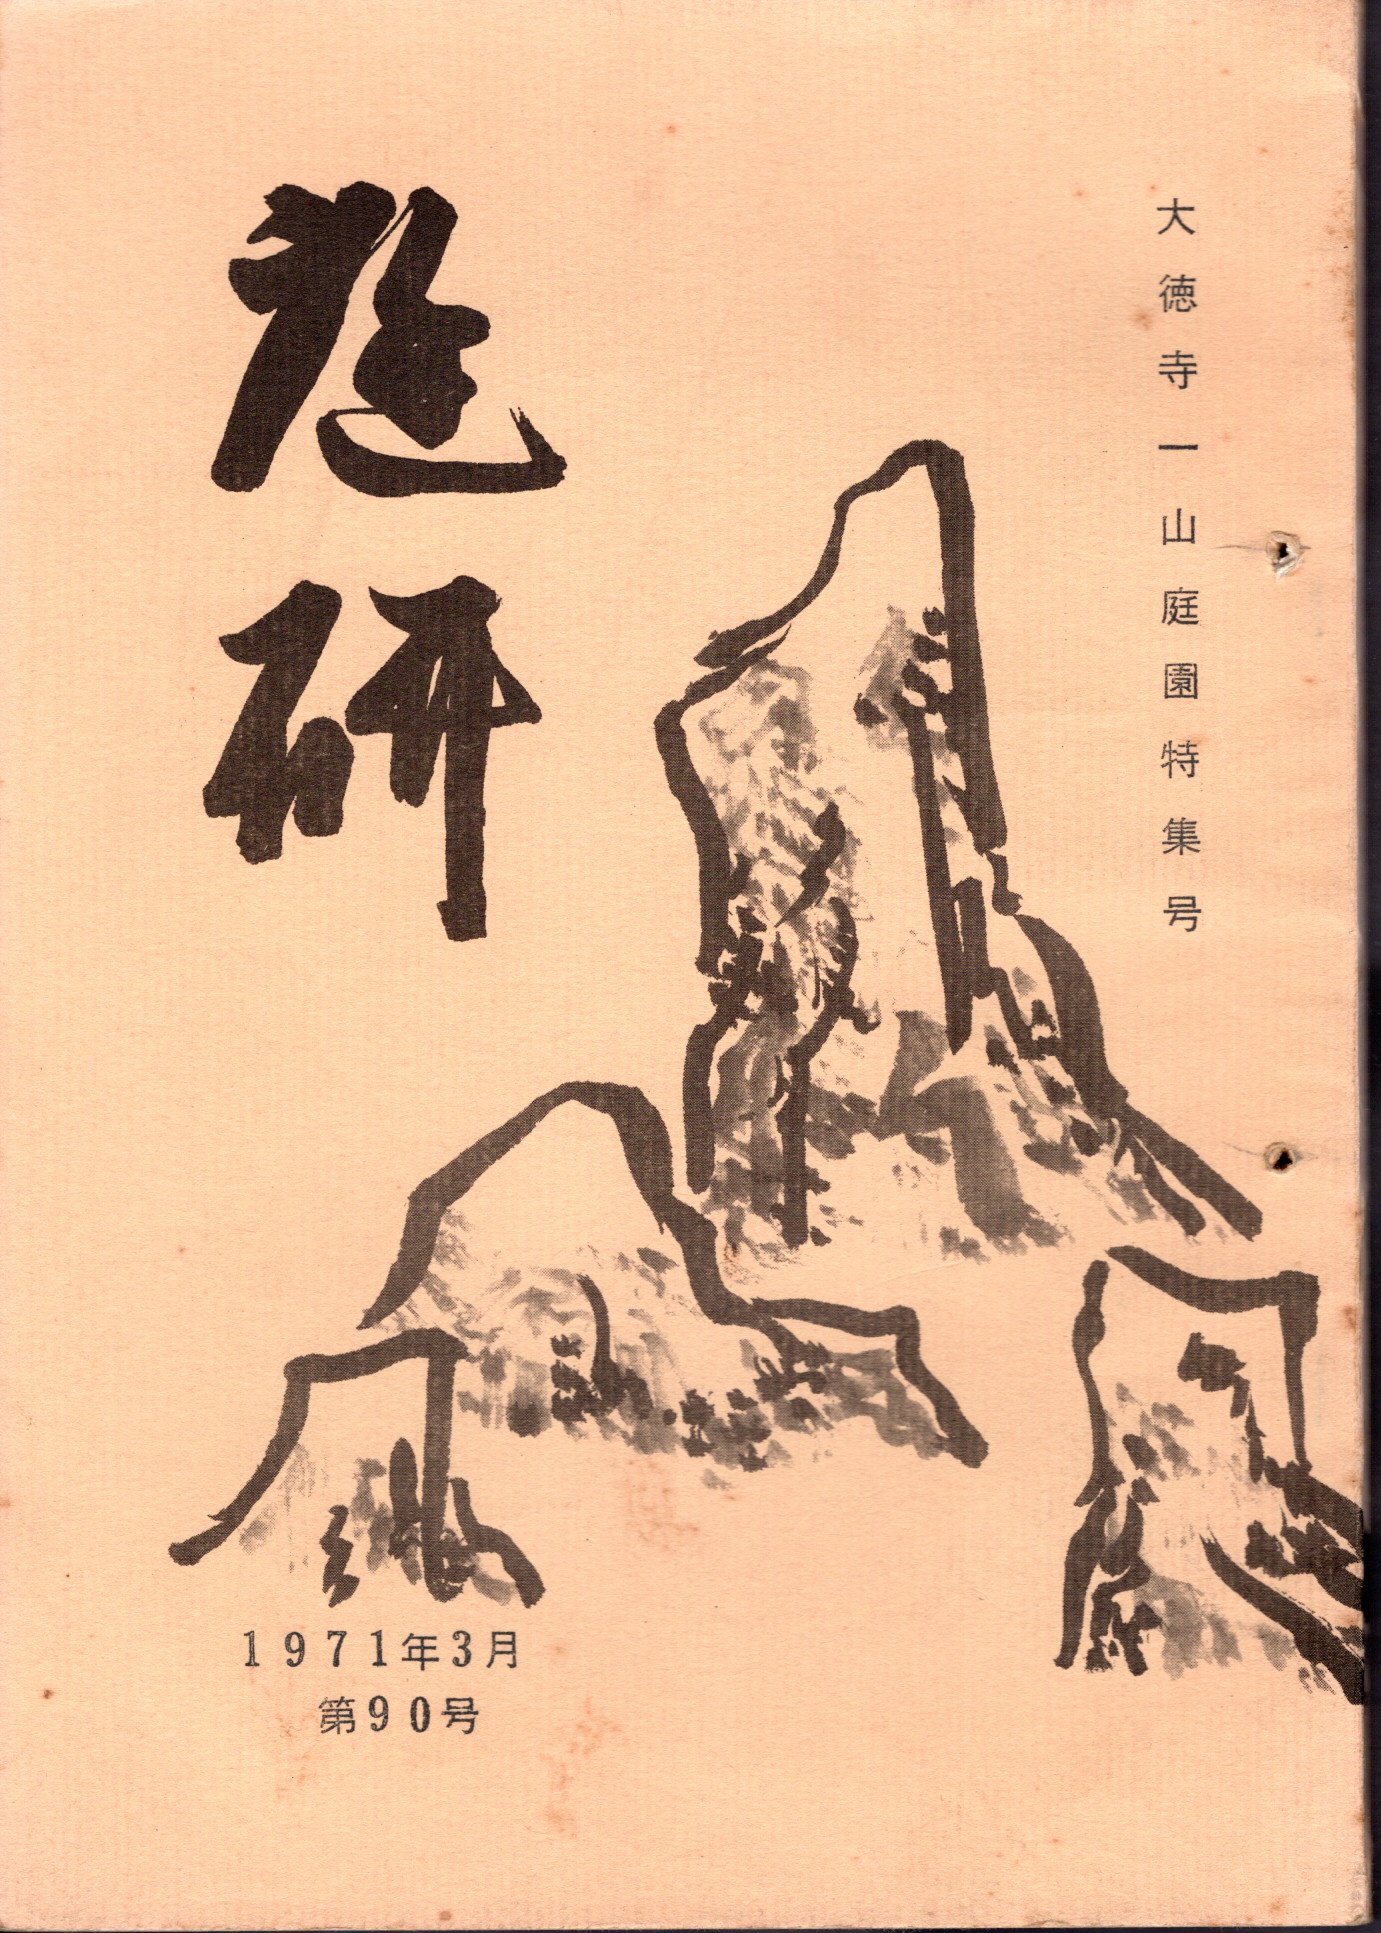 大徳寺一山庭園特集号
庭研
1971年3月
第90号